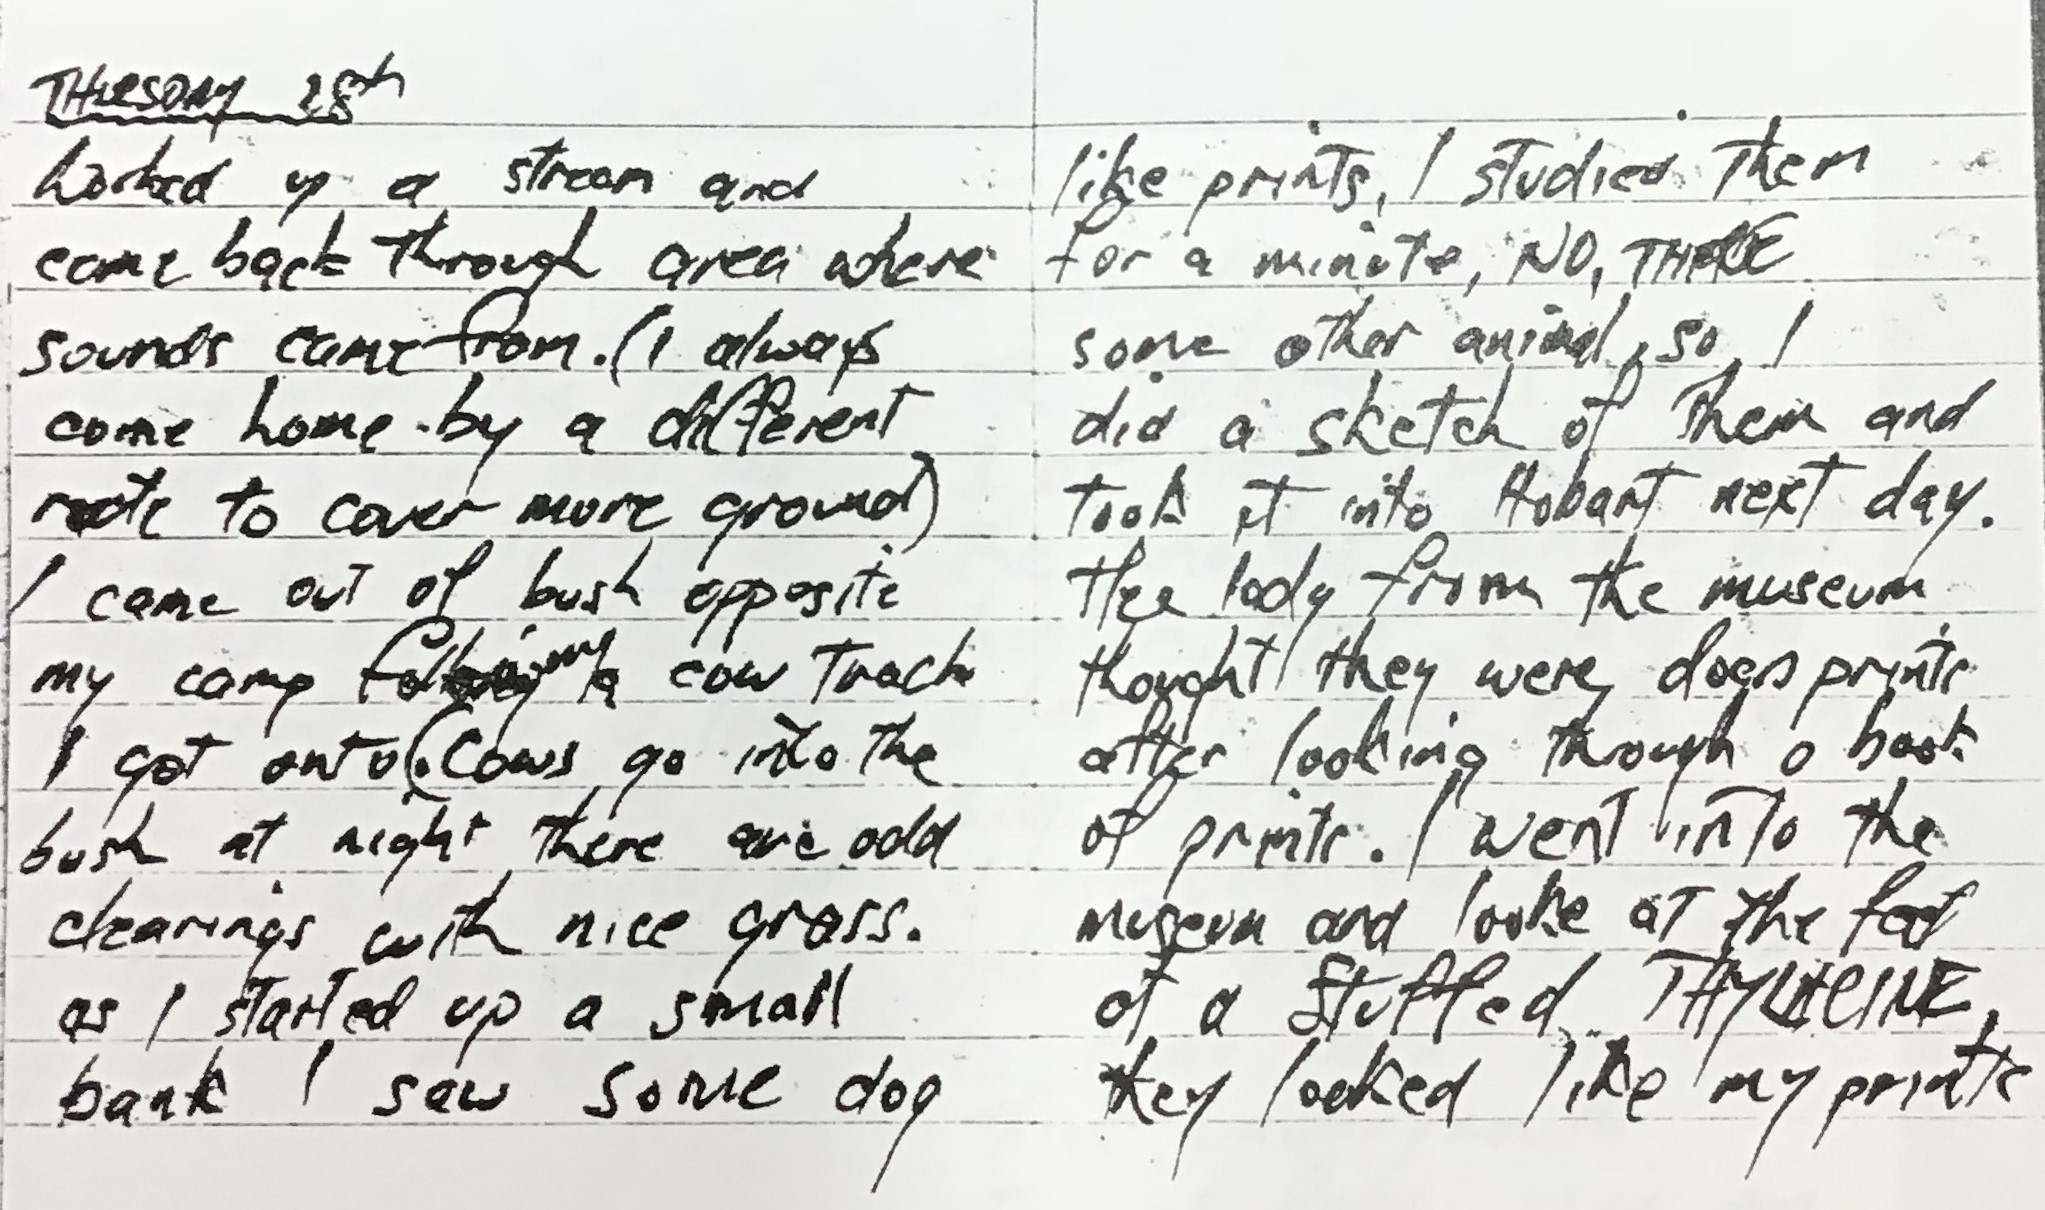 THURSDAY 28th
Worked up a stream and
come back through area where
sounds came from. (I always
come home by a different
route to cover more ground)
I came out of bush opposite
my camp following a cow track
I got onto (. Cows go into the
bush at night there are odd
clearings with nice grass.
as I started up a small
bank I saw some dog
like prints, I studied them
for a minute, NO, THERE
some other animal, so, I
did a sketch of them and
took it into Hobart next day.
The lady from the museum
thought they were dogs prints
after looking through a book
of prints. I went into the
museum and looke at the foot
of a stuffed THYLACINE,
they looked like my prints